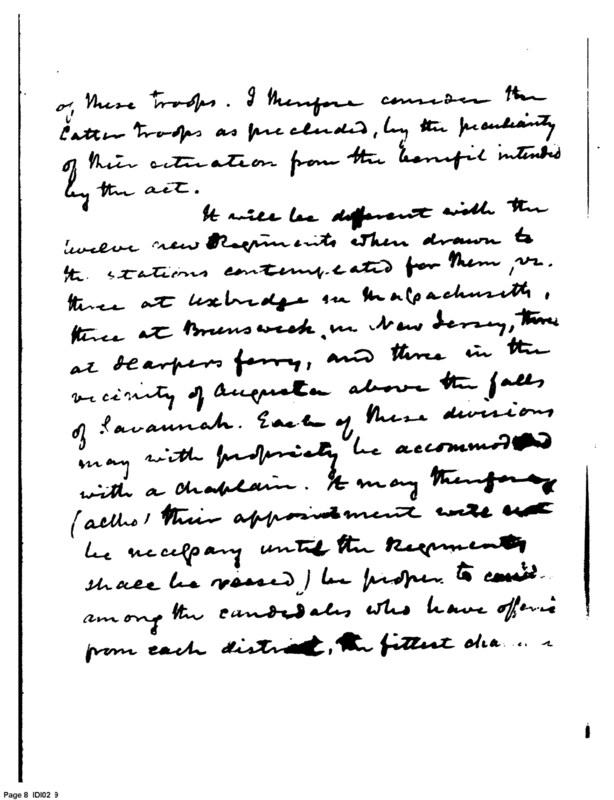 of these troops. I therefore consider the
latter troops as precluded, by the peculiarity
of their situation from the benefit intended
by the act.
It will be different with the
twelve new Regiments when drawn to
the stations contemplated for them, viz.
three at Uxbridge in Massachusetts,
three at Brunswick, in New Jersey, three
at Harpers ferry, and three in the
vicinity of Augusta above the falls
of Savannah. Each of these divisions
may with propriety be accommodated
with a chaplain. It may therefore
(altho' their appointment will not
be necessary until the Regiments
shall be raised) be proper to
among the candidates who have offered
from each district, the fittest
Page 8 IDI02 9